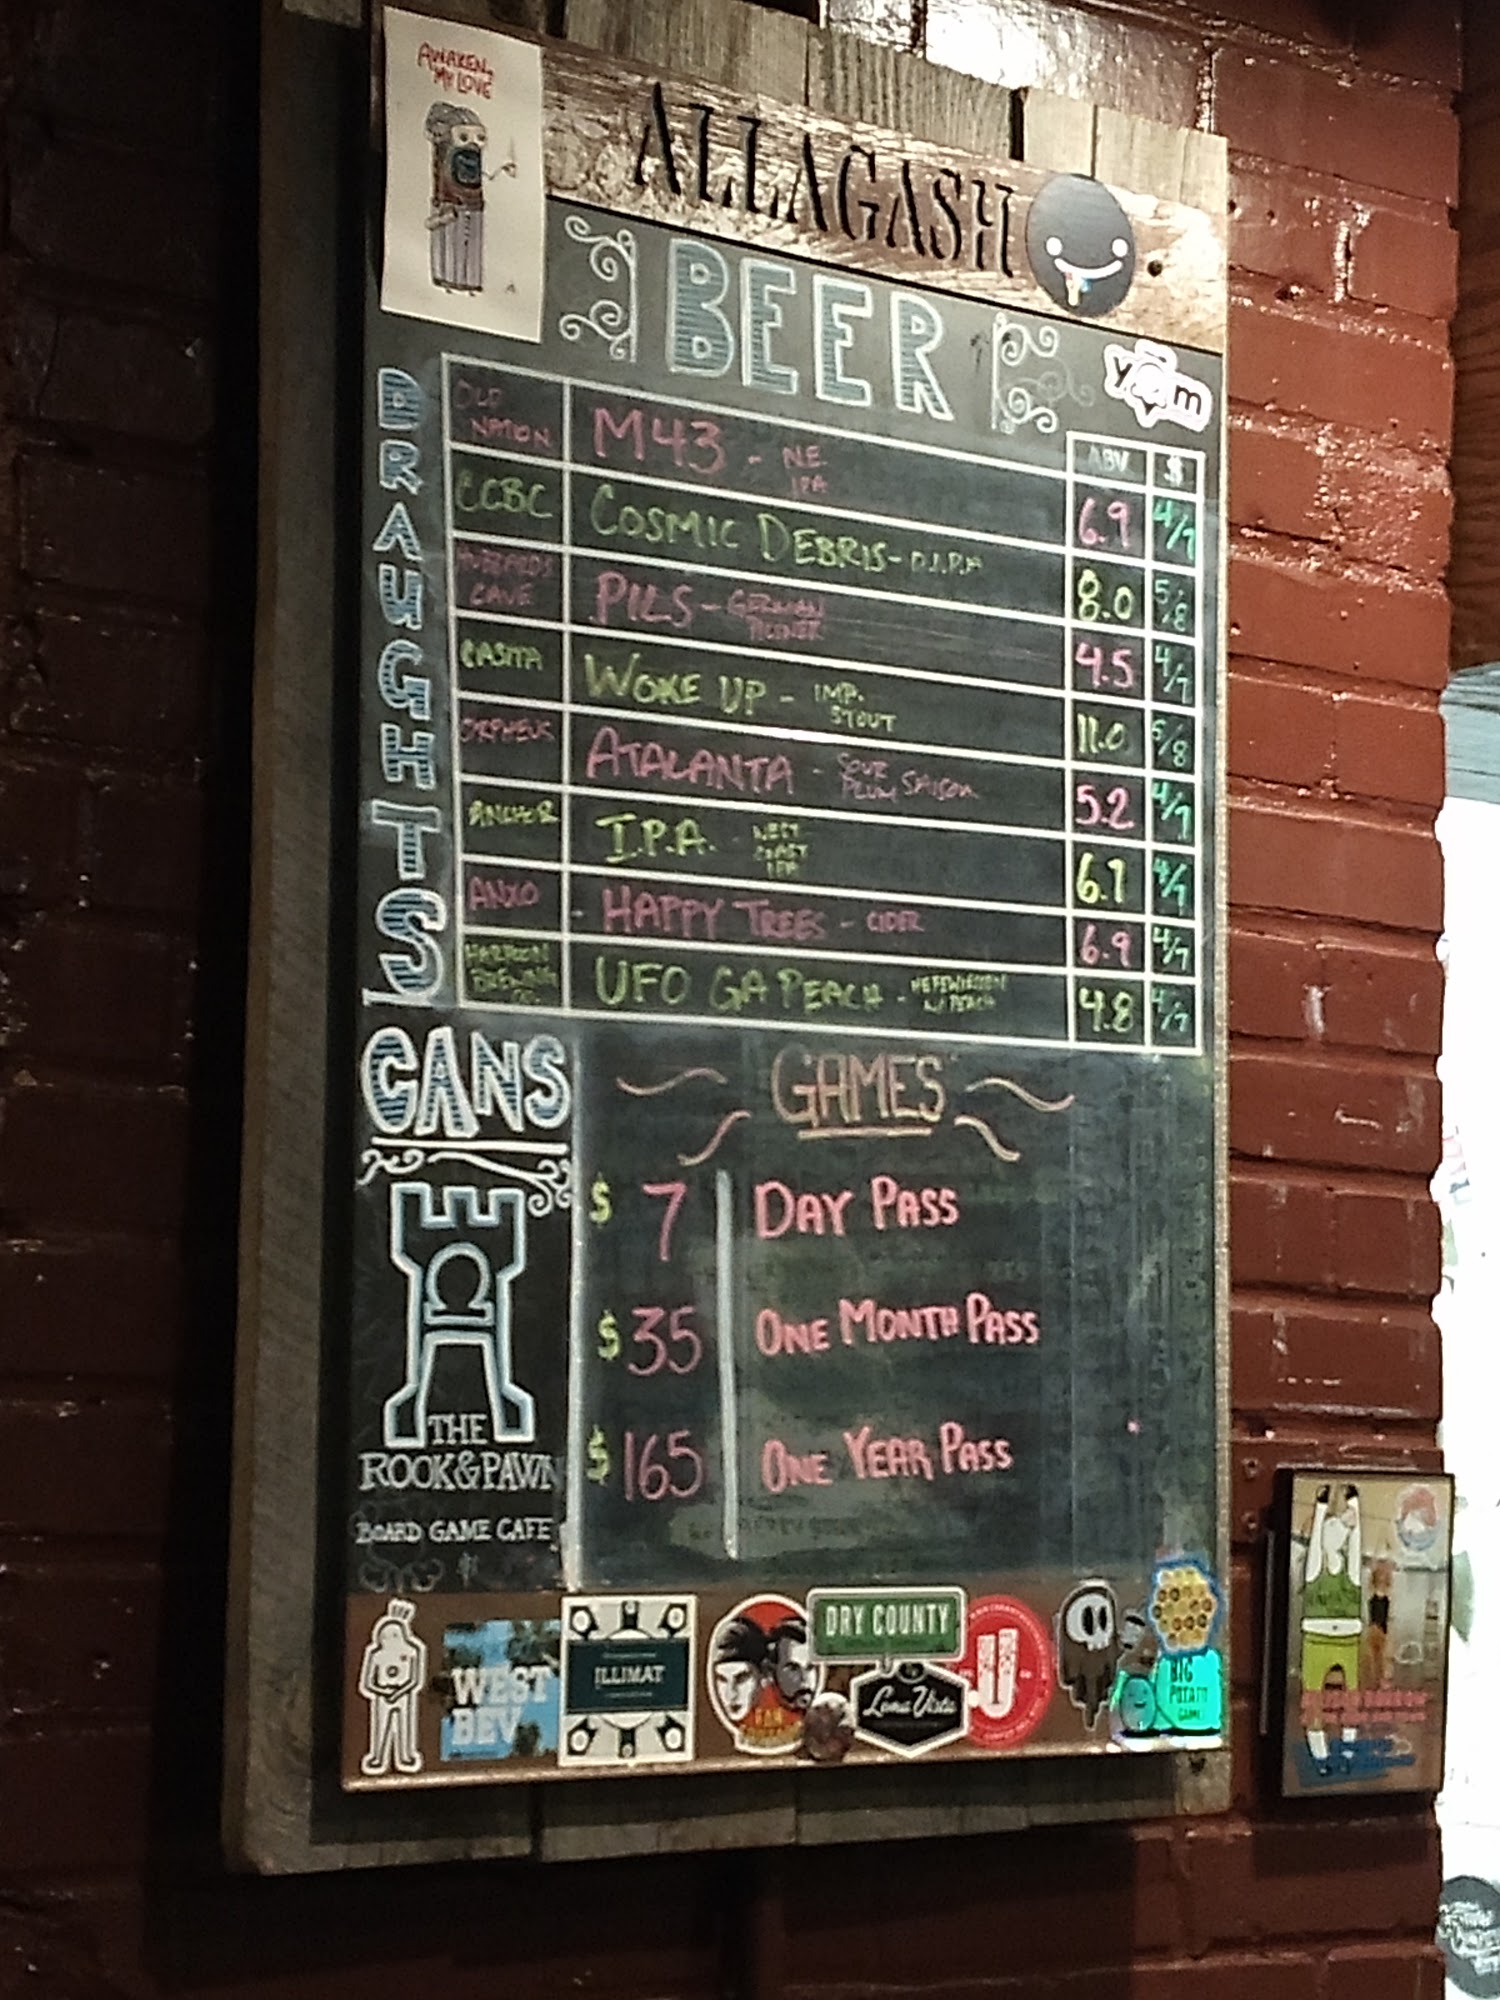 AWAKEN,
MY LOVE
ALLAGASH
BEER
yom
DRAUGHTS
ABV $
OLD NATION M43 - N.E. IPA 6.9 4/7
CCBC COSMIC DEBRIS - D.I.P.A 8.0 5/8
CAVE PILS - GERMAN PILSNER 4.5 4/7
CASITA WOKE UP - IMP. STOUT 11.0 /8
ORPHEUS ATALANTA - SOUR PLUM SAISON 5.2 4/7
ANCHOR I.P.A. - WEST COAST IPA 4/7
ANXO - HAPPY TREES - CIDER 6.9 4/7
HARPOON BREWING CO. UFO GA PEACH - W/ PEACH 4.8 4/7
CANS
GAMES
$ 7 DAY PASS
$ 35 ONE MONTH PASS
$ 165 ONE YEAR PASS
THE
ROOK&PAWN
BOARD GAME CAFE
WEST
BEV
ILLIMAT
DRY COUNTY
BIG
POTATO
GAMES